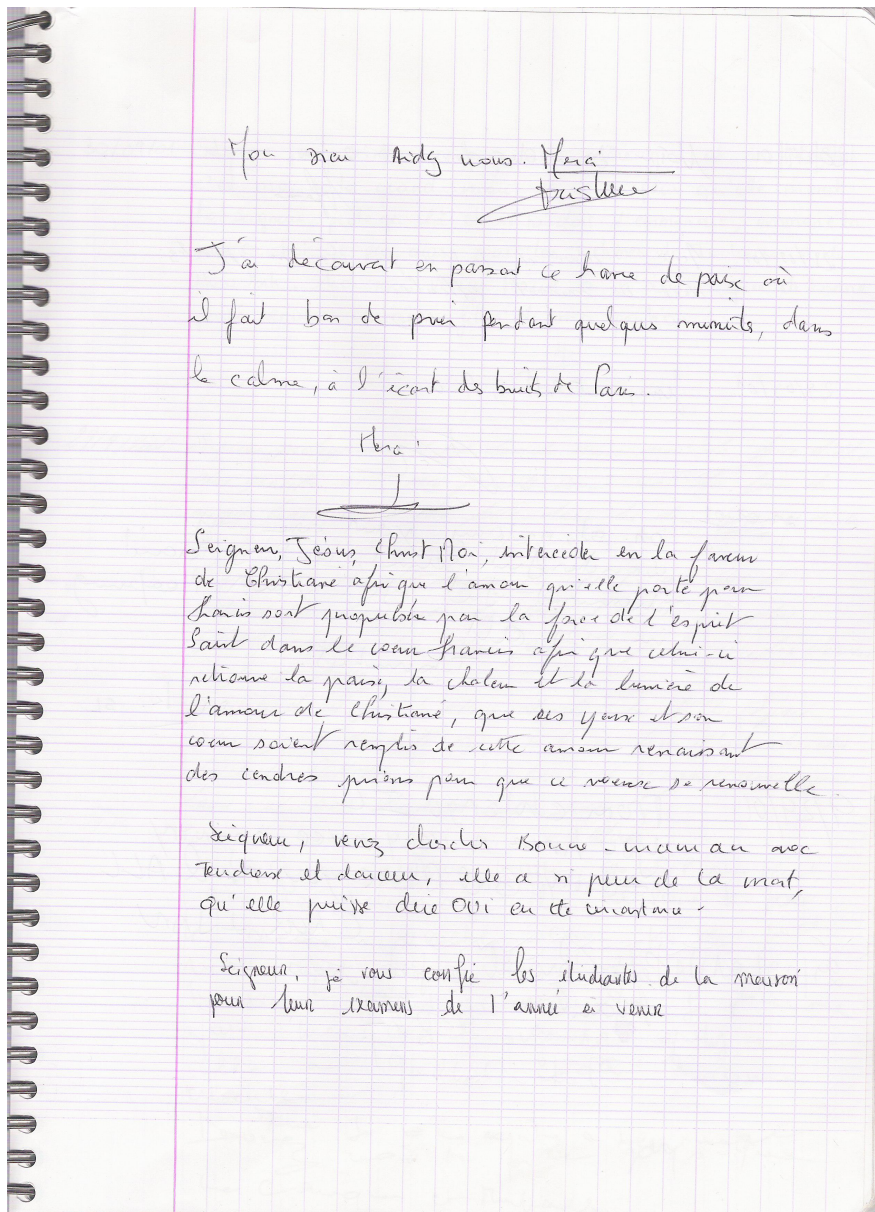 Mon Dieu Aidez nous. Merci
J'ai découvert en passant ce havre de paix où
il fait bon de prier pendant quelques minutes, dans
le calme, à l'écart des bruits de Paris.
Merci
Seigneur, Jésus, Christ Roi, intercéder en la faveur
de Christiane afin que l'amour qu'elle porte pour
francis sont propulsée par la force de l'esprit
Saint dans le coeur francis afin que celui-ci
retrouve la paix, la chaleur et la lumière de
l'amour de Christiane, que ses yeux et son
coeur soient remplis de cette amour renaissant
des cendres prions pour que ce voeux se renouvelle.
Seigneur, venez chercher Bonne-maman avec
Tendresse et douceur, elle a si peur de la mort,
qu'elle puisse dire OUI en tte circonstance -
Seigneur, je vous confie les étudiantes de la maison
pour leur examens de l'année à venir